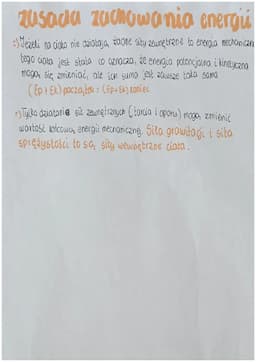 zasada zachowania energii
-) Jeżeli na ciało nie działają żadne siły zewnętrzne to energia mechaniczna
tego ciała jest stała co oznacza, że energia potencjalna i kinetyczna
mogą się zmieniać, ale ich suma jest zawsze taka sama
(Ep + Ek) początek = (Ep + Ek) koniec
-) Tylko działanie sił zewnętrznych (tarcia i oporu) mogą zmienić
wartość końcową energii mechanicznej. Siła grawitacji i siła
sprężystości to są siły wewnętrzne ciała.